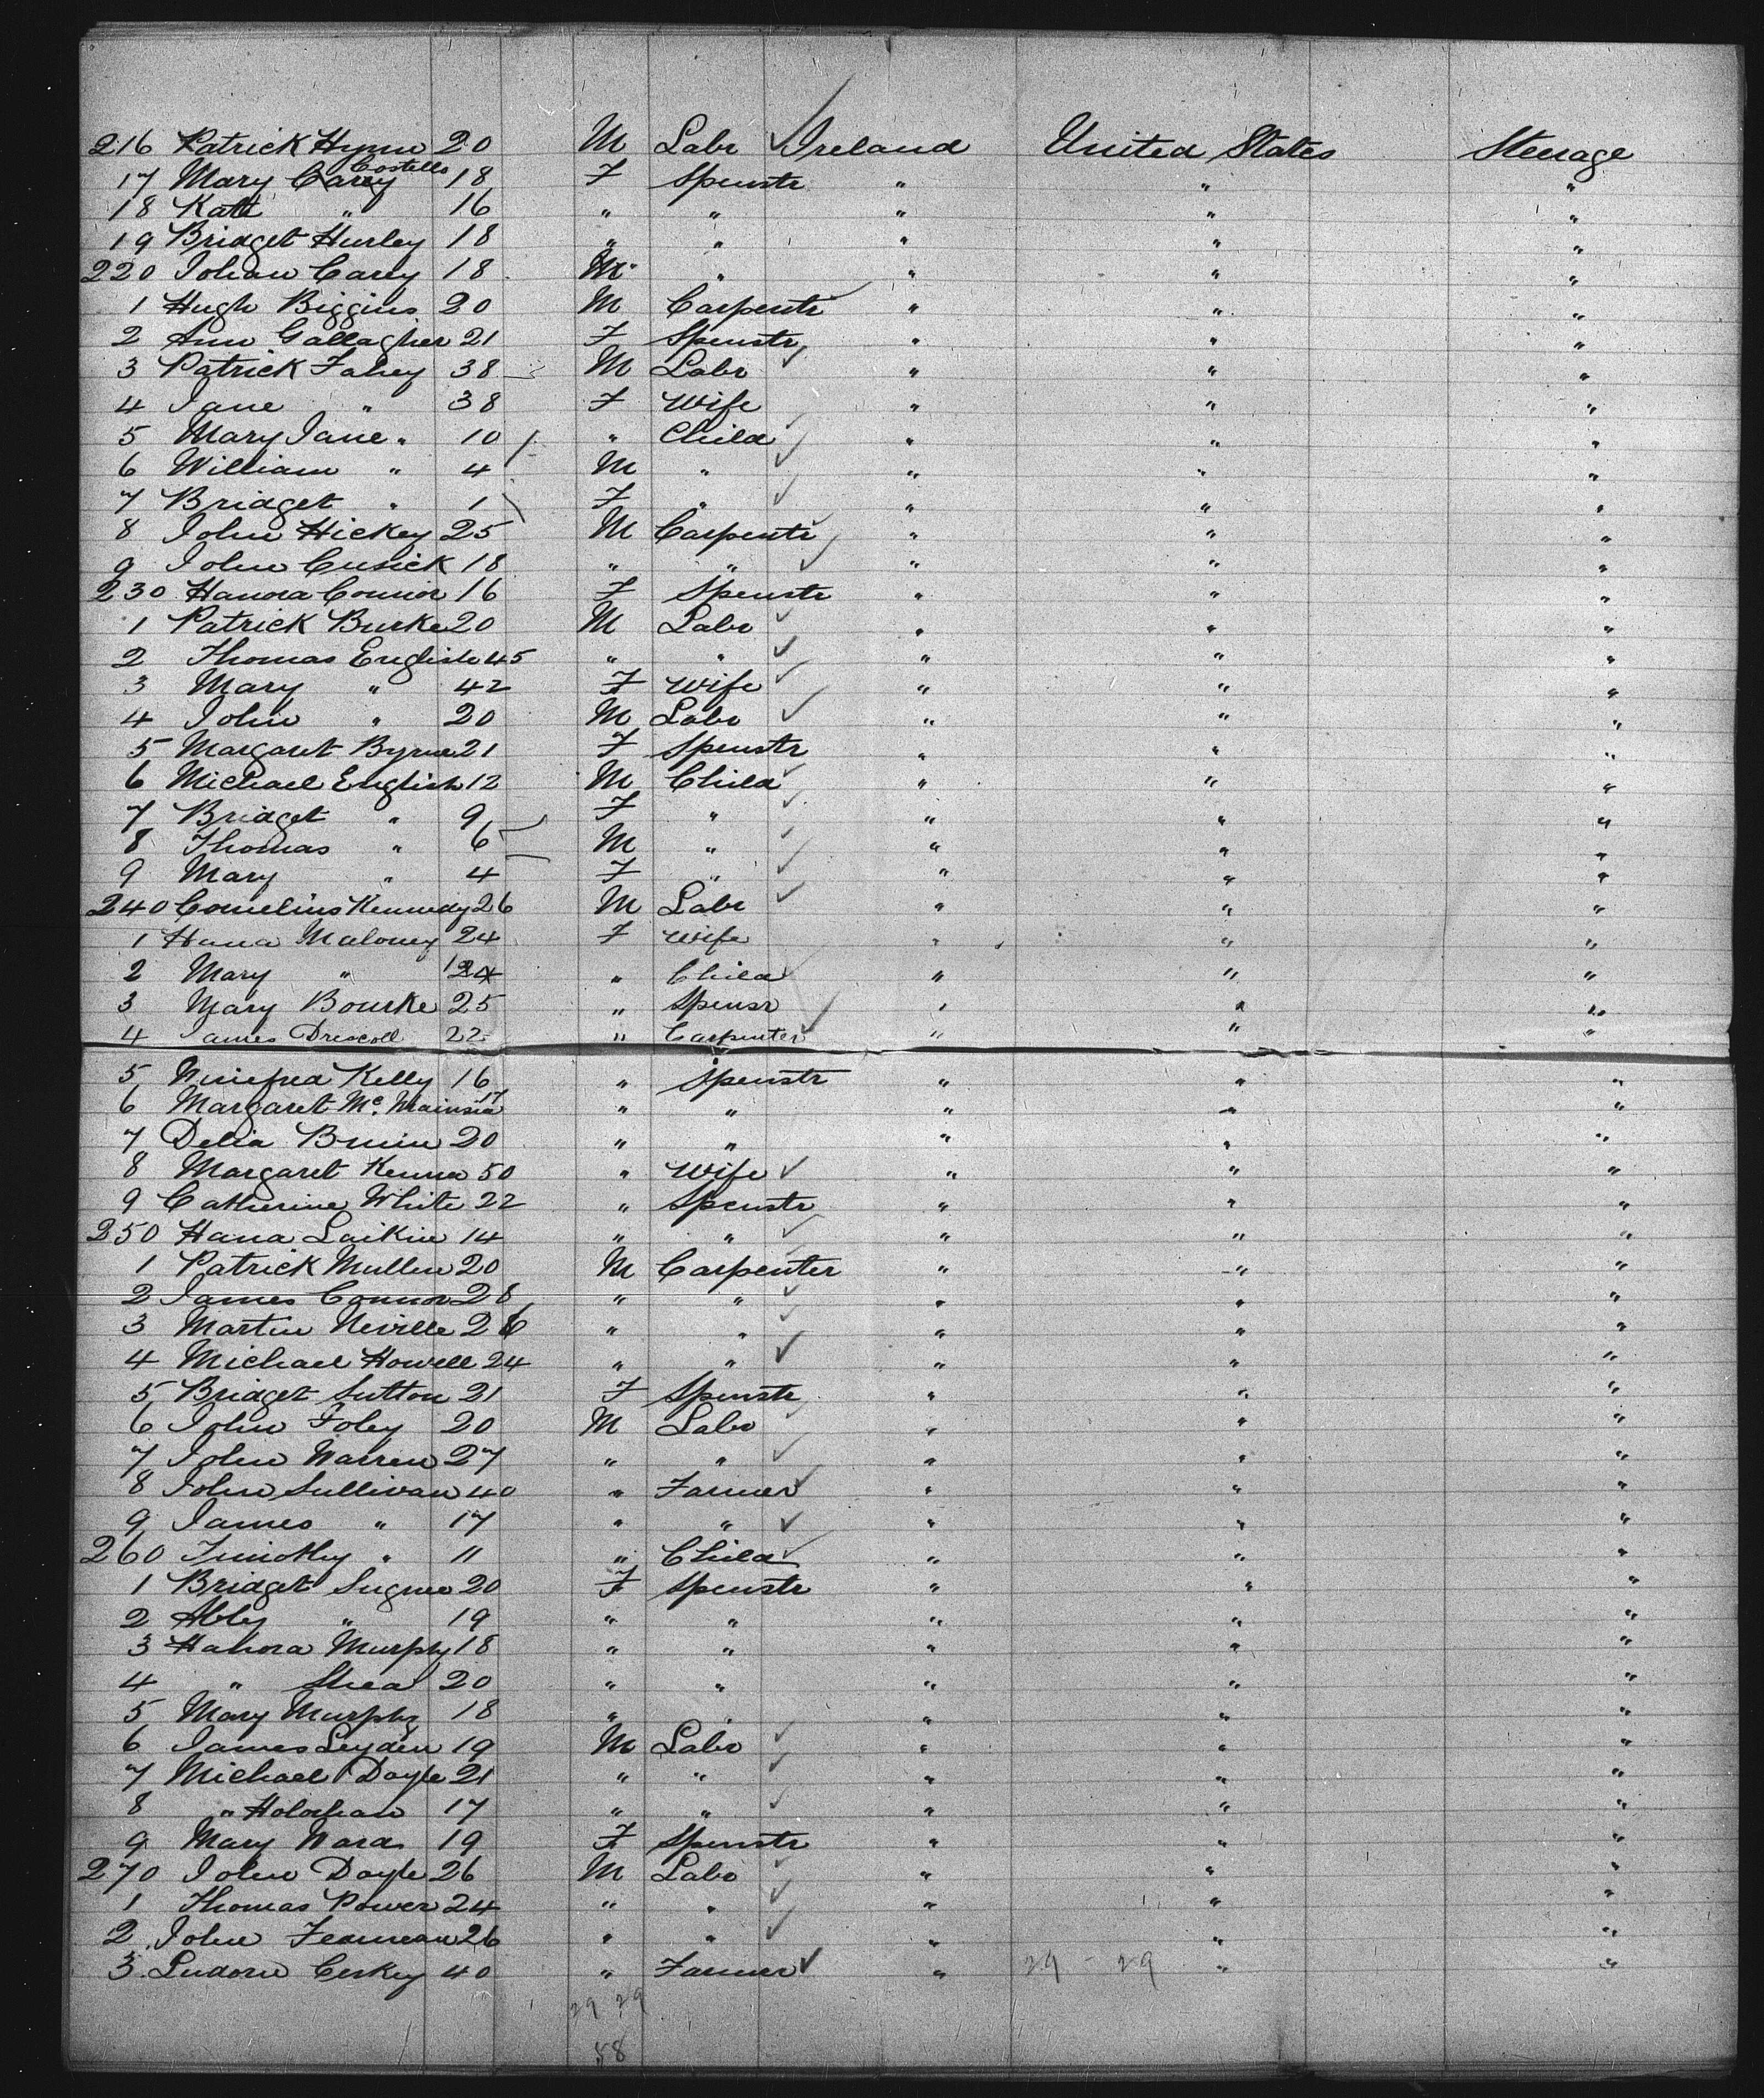 216 Patrick Hynn 20 M Labr Ireland United States Steerage
17 Mary Carey Costello 18 F Spenstr " " "
18 Kate " 16 " " " " "
19 Bridget Hurley 18 " " " " "
220 Johan Carey 18 M " " " "
1 Hugh Biggins 20 M Carpentr " " "
2 Ann Gallagher 21 F Spenstr " " "
3 Patrick Fahey 38 M Labr " " "
4 Jane " 38 F Wife " " "
5 Mary Jane " 10 " Child " " "
6 William " 4 M " " " "
7 Bridget " 1 F " " " "
8 John Hickey 25 M Carpentr " " "
9 John Cusick 18 " " " " "
230 Hanora Connor 16 F Spenstr " " "
1 Patrick Burke 20 M Labr " " "
2 Thomas English 45 " " " " "
3 Mary " 42 F Wife " " "
4 John " 20 M Labr " " "
5 Margaret Byrne 21 F Spenstr " " "
6 Michael English 12 M Child " " "
7 Bridget " 9 F " " " "
8 Thomas " 6 M " " " "
9 Mary " 4 F " " " "
240 Cornelius Kennedy 26 M Labr " " "
1 Hana Maloney 24 F Wife " " "
2 Mary " " Child " " "
3 Mary Bourke 25 " Spensr " " "
4 James Driscoll 22 " Carpenter " " "
5 Winefred Kelly 16 " Spenstr " " "
6 Margaret Mc 17 " " " " "
7 Delia Bruin 20 " " " " "
8 Margaret Kenna 50 " Wife " " "
9 Catherine White 22 " Spenstr " " "
250 Hana Laikin 14 " " " " "
1 Patrick Mullen 20 M Carpenter " " "
2 James Connor 28 " " " " "
3 Martin Neville 26 " " " " "
4 Michael Howell 24 " " " " "
5 Bridget Sutton 21 F Spenstr " " "
6 John Foley 20 M Labr " " "
7 John Warren 27 " " " " "
8 John Sullivan 40 " Farmer " " "
9 James " 17 " " " " "
260 Timothy " 11 " Child " " "
1 Bridget Sugrue 20 F Spenstr " " "
2 Abby " 19 " " " " "
3 Hanora Murphy 18 " " " " "
4 " Shea 20 " " " " "
5 Mary Murphy 18 " " " " "
6 James Leyden 19 M Labr " " "
7 Michael Doyle 21 " " " " "
8 " Holohan 17 " " " " "
9 Mary Ward 19 F Spenstr " " "
270 John Doyle 26 M Labr " " "
1 Thomas Power 24 " " " " "
2 John 26 " " " " "
3 Cuskey 40 " Farmer " 29 - 29 " "
29 29
58